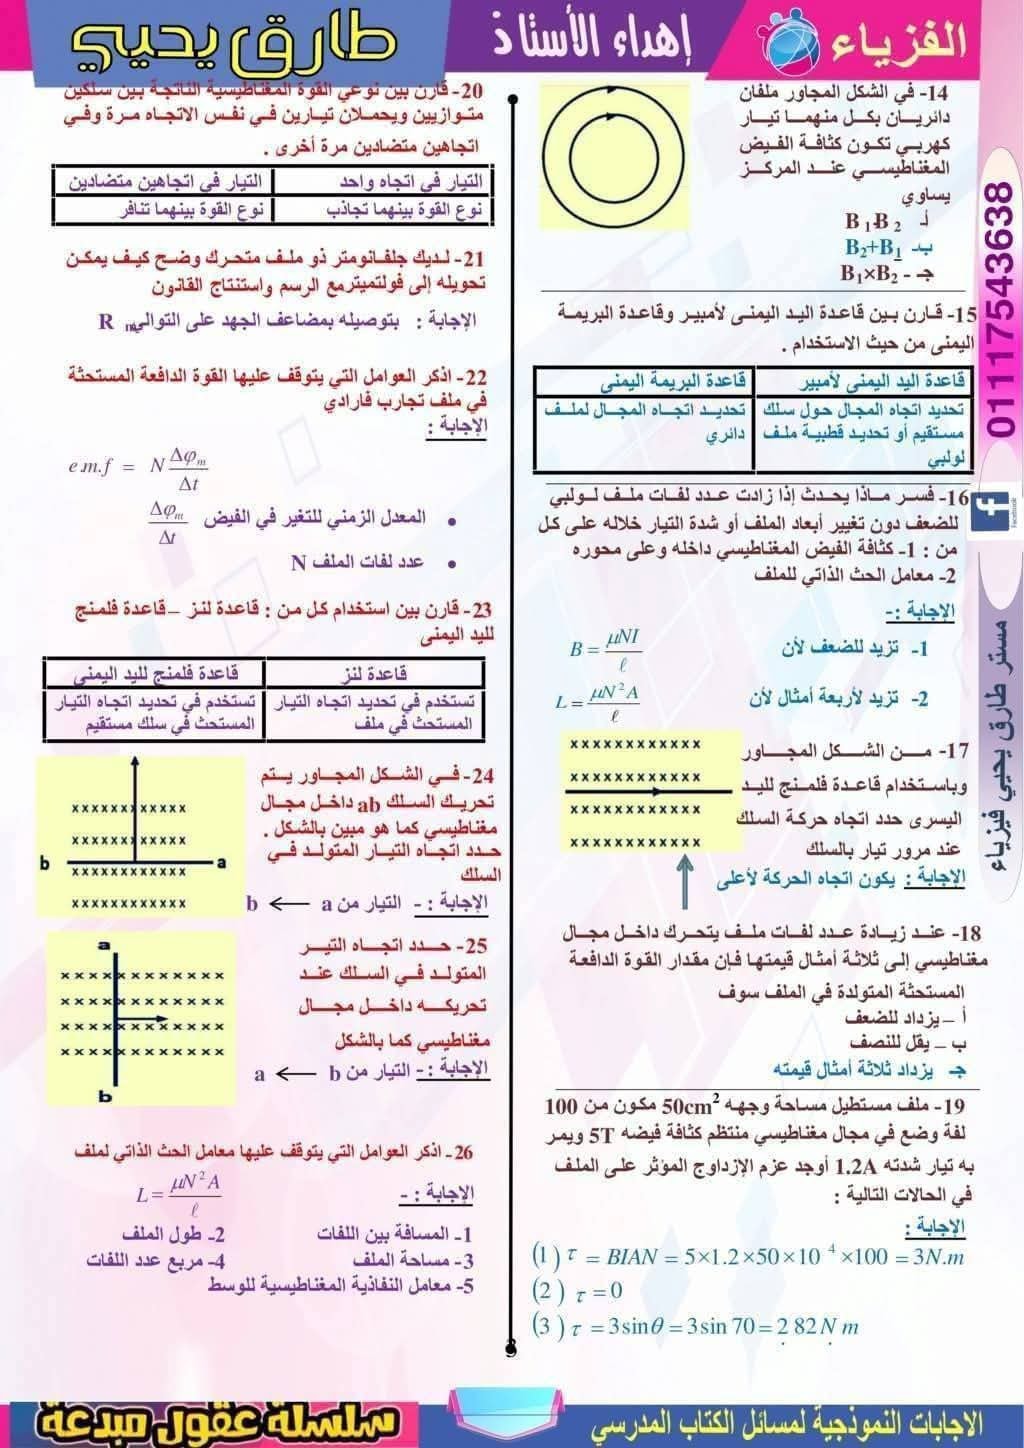 الفزياء
إهداء الأستاذ
طارق يحيي
14- في الشكل المجاور ملفان
دائريان بكل منهما تيار
كهربي تكون كثافة الفيض
المغناطيسي عند المركز
يساوي
أ- B1-B2
ب- B2+B1
جـ - B1×B2
15- قارن بين قاعدة اليد اليمنى لأمبير وقاعدة البريمة
اليمنى من حيث الاستخدام .
قاعدة اليد اليمنى لأمبير قاعدة البريمة اليمنى
تحديد اتجاه المجال حول سلك تحديد اتجاه المجال لملف
مستقيم أو تحديد قطبية ملف دائري
لولبي
16- فسر ماذا يحدث إذا زادت عدد لفات ملف لولبي
للضعف دون تغيير أبعاد الملف أو شدة التيار خلاله على كل
من : 1- كثافة الفيض المغناطيسي داخله وعلى محوره
2- معامل الحث الذاتي للملف
الإجابة :-
1- تزيد للضعف لأن B = μNI/ℓ
2- تزيد لأربعة أمثال لأن L = μN²A/ℓ
17- من الشكل المجاور
وباستخدام قاعدة فلمنج لليد
اليسرى حدد اتجاه حركة السلك
عند مرور تيار بالسلك
الإجابة : يكون اتجاه الحركة لأعلى
x x x x x x x x x x x x
x x x x x x x x x x x x
x x x x x x x x x x x x
x x x x x x x x x x x x
18- عند زيادة عدد لفات ملف يتحرك داخل مجال
مغناطيسي إلى ثلاثة أمثال قيمتها فإن مقدار القوة الدافعة
المستحثة المتولدة في الملف سوف
أ – يزداد للضعف
ب – يقل للنصف
جـ- يزداد ثلاثة أمثال قيمته
19- ملف مستطيل مساحة وجهه 50cm² مكون من 100
لفة وضع في مجال مغناطيسي منتظم كثافة فيضه 5T ويمر
به تيار شدته 1.2A أوجد عزم الإزدواج المؤثر على الملف
في الحالات التالية :
الإجابة :
(1) τ = BIAN = 5×1.2×50×10 ⁴ ×100 = 3N.m
(2) τ = 0
(3) τ = 3sinθ = 3sin 70 = 2.82N.m
20- قارن بين نوعي القوة المغناطيسية الناتجة بين سلكين
متوازيين ويحملان تيارين في نفس الاتجاه مرة وفي
اتجاهين متضادين مرة أخرى .
التيار في اتجاه واحد التيار في اتجاهين متضادين
نوع القوة بينهما تجاذب نوع القوة بينهما تنافر
21- لديك جلفانومتر ذو ملف متحرك وضح كيف يمكن
تحويله إلى فولتميترمع الرسم واستنتاج القانون
الإجابة : بتوصيله بمضاعف الجهد على التوالي R m
22- اذكر العوامل التي يتوقف عليها القوة الدافعة المستحثة
في ملف تجارب فارادي
الإجابة :
e.m.f = N Δφm/Δt
• المعدل الزمني للتغير في الفيض Δφm/Δt
• عدد لفات الملف N
23- قارن بين استخدام كل من : قاعدة لنز – قاعدة فلمنج
لليد اليمنى
قاعدة لنز قاعدة فلمنج لليد اليمني
تستخدم في تحديد اتجاه التيار تستخدم في تحديد اتجاه التيار
المستحث في ملف المستحث في سلك مستقيم
24- في الشكل المجاور يتم
تحريك السلك ab داخل مجال
مغناطيسي كما هو مبين بالشكل .
حدد اتجاه التيار المتولد في
السلك
الإجابة :- التيار من b ← a
x x x x x x x x x x x x
x x x x x x x x x x x x
b a
x x x x x x x x x x x x
x x x x x x x x x x x x
25- حدد اتجاه التير
المتولد في السلك عند
تحريكه داخل مجال
مغناطيسي كما بالشكل
الإجابة :- التيار من a ← b
a
x x x x x x x x x x x x x
x x x x x x x x x x x x x
x x x x x x x x x x x x x
x x x x x x x x x x x x x
b
26- اذكر العوامل التي يتوقف عليها معامل الحث الذاتي لملف
الإجابة :- L = μN²A/ℓ
1- المسافة بين اللفات 2- طول الملف
3- مساحة الملف 4- مربع عدد اللفات
5- معامل النفاذية المغناطيسية للوسط
01117543638
Facebook
مستر طارق يحيي فيزياء
3
الاجابات النموذجية لمسائل الكتاب المدرسي
سلسلة عقول مبدعة